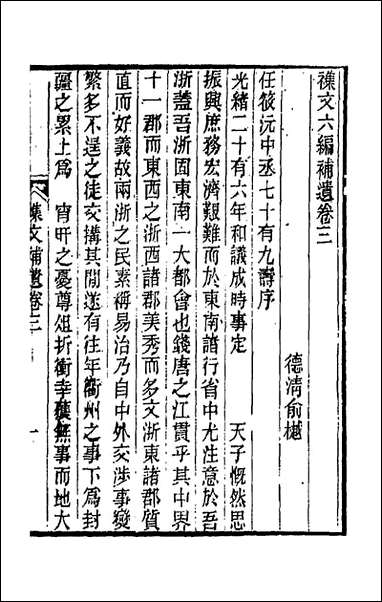 襍文六編補遺卷三
德清俞樾
任筱沅中丞七十有九壽序
光緒二十有六年和議成時事定　天子慨然思
振興庶務宏濟艱難而於東南諸行省中尤注意於吾
浙蓋吾浙固東南一大都會也錢唐之江貫乎其中界
十一郡而東西之浙西諸郡美秀而多文浙東諸郡質
直而好義故兩浙之民素稱易治乃自中外交涉事變
繁多不逞之徒交搆其閒遂有往年衢州之事下爲封
疆之累上爲　宵旰之憂尊俎折衝幸獲無事而地大
襍文補遺卷三
一